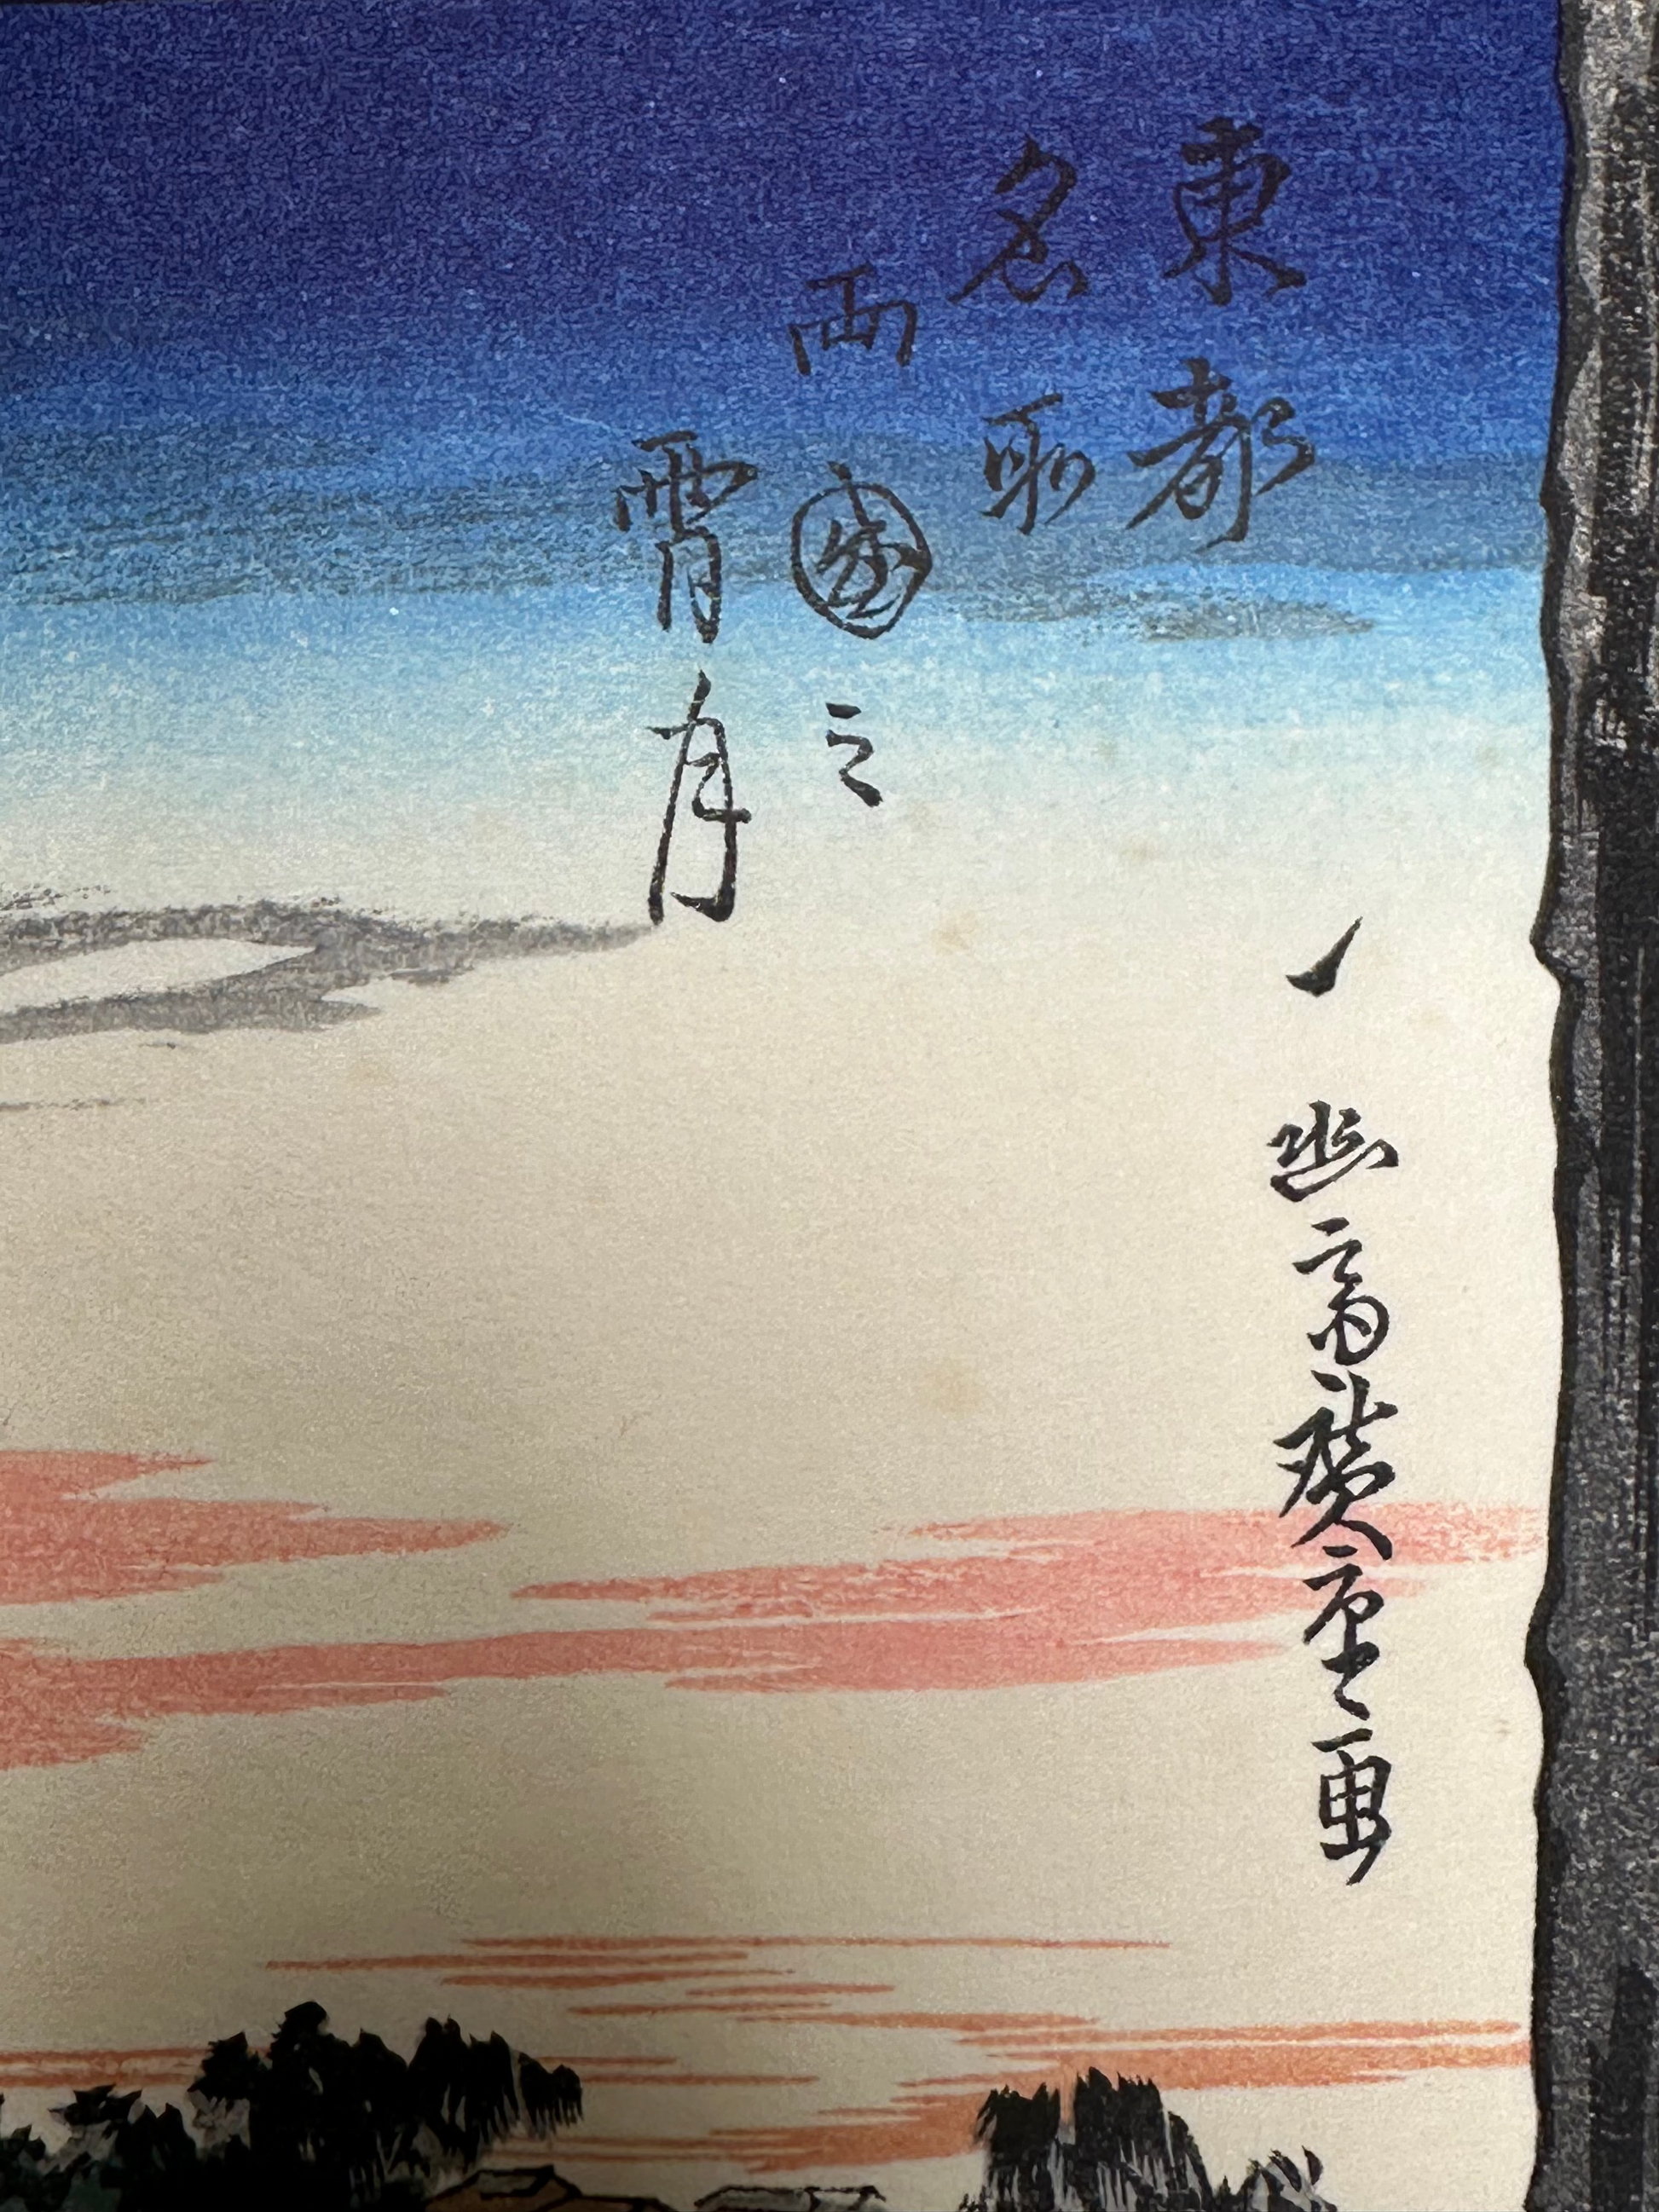 東都
名所
両国之
宵月
一幽斎廣重画